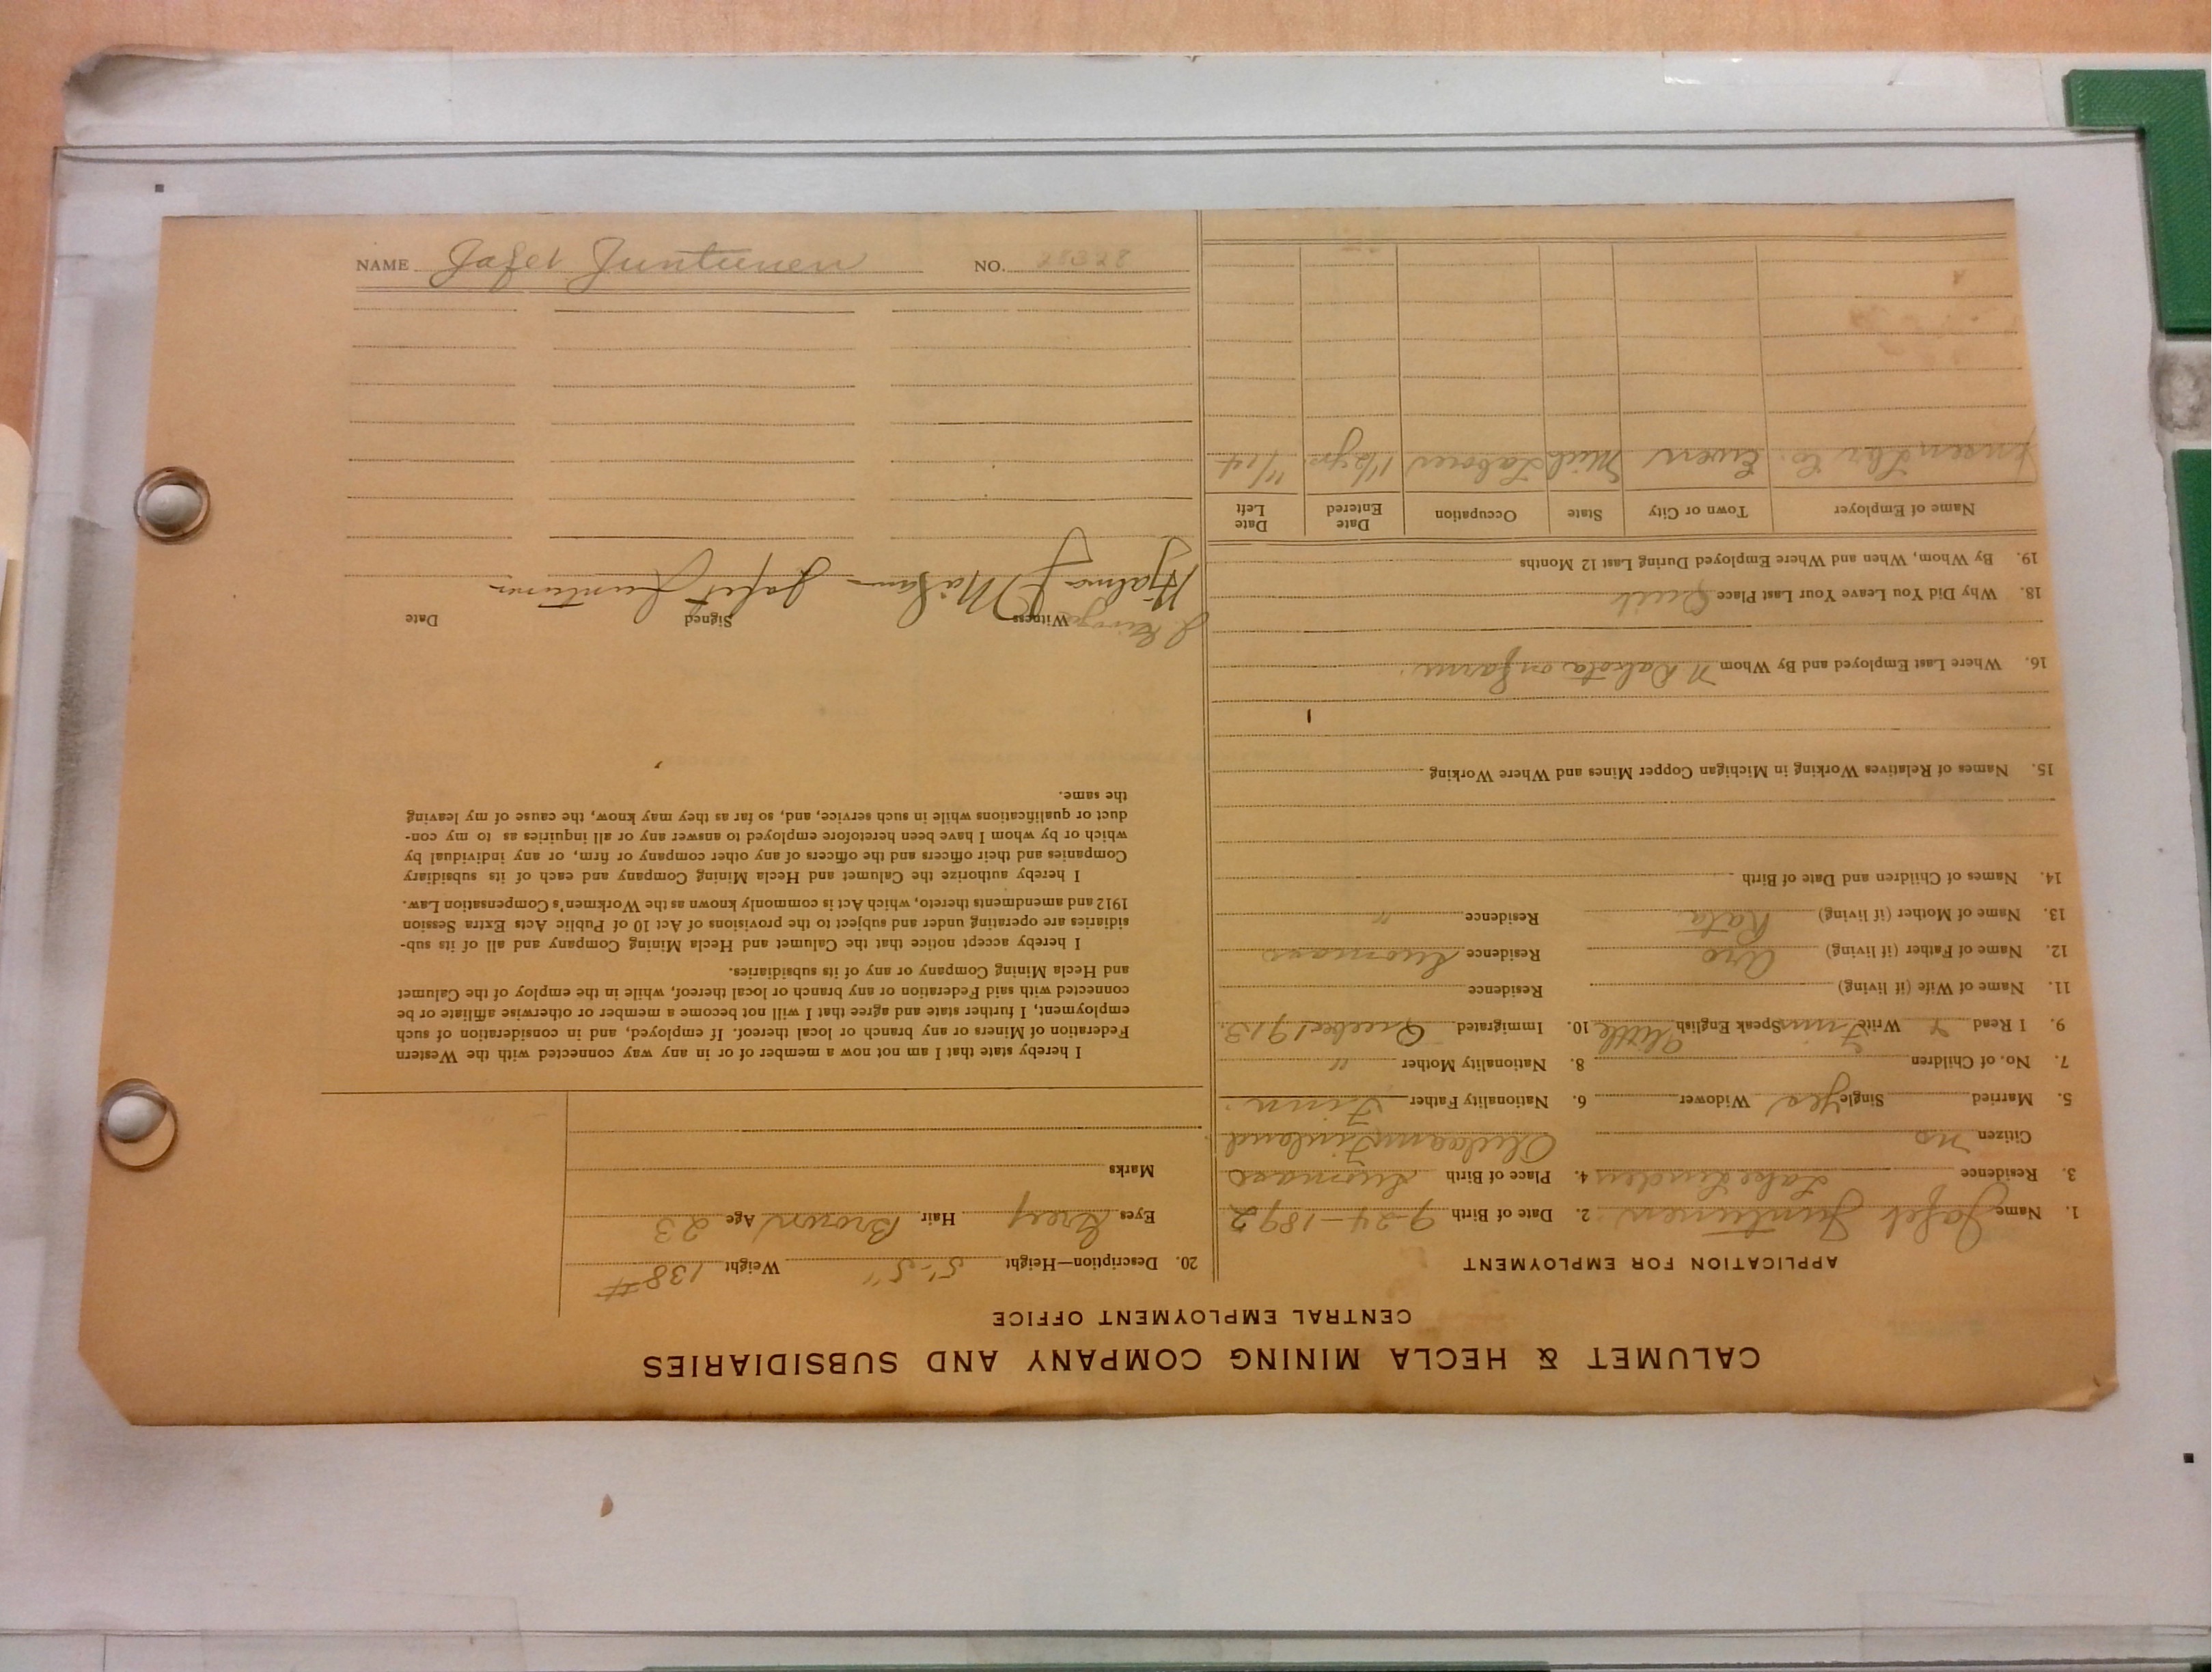 CALUMET & HECLA MINING COMPANY AND SUBSIDIARIES
CENTRAL EMPLOYMENT OFFICE
APPLICATION FOR EMPLOYMENT
1. Name Jafet Juntunen 2. Date of Birth 9-24-1892
3. Residence Lake Linden 4. Place of Birth Suomaos
Citizen no Finland
5. Married Single Yes Widower 6. Nationality Father Finn.
7. No. of Children 8. Nationality Mother "
9. I Read Y Write Finn Speak English little 10. Immigrated 1913.
11. Name of Wife (if living) Residence
12. Name of Father (if living) Aro Residence Suomaos
13. Name of Mother (if living) Kata Residence "
14. Names of Children and Date of Birth
15. Names of Relatives Working in Michigan Copper Mines and Where Working
16. Where Last Employed and By Whom N Dakota on farm.
18. Why Did You Leave Your Last Place Quit
19. By Whom, When and Where Employed During Last 12 Months
Name of Employer Town or City State Occupation Date Entered Date Left
Lbr Co. Ewen Mich Laborer 1 1/2 yrs 11/14
20. Description—Height 5'-5" Weight 138#
Eyes Grey Hair Brown Age 23
Marks
I hereby state that I am not now a member of or in any way connected with the Western
Federation of Miners or any branch or local thereof. If employed, and in consideration of such
employment, I further state and agree that I will not become a member or otherwise affiliate or be
connected with said Federation or any branch or local thereof, while in the employ of the Calumet
and Hecla Mining Company or any of its subsidiaries.
I hereby accept notice that the Calumet and Hecla Mining Company and all of its sub-
sidiaries are operating under and subject to the provisions of Act 10 of Public Acts Extra Session
1912 and amendments thereto, which Act is commonly known as the Workmen's Compensation Law.
I hereby authorize the Calumet and Hecla Mining Company and each of its subsidiary
Companies and their officers and the officers of any other company or firm, or any individual by
which or by whom I have been heretofore employed to answer any or all inquiries as to my con-
duct or qualifications while in such service, and, so far as they may know, the cause of my leaving
the same.
Witness Signed Date
Hjalmar Jafet Juntunen
NAME Jafet Juntunen NO. 28328